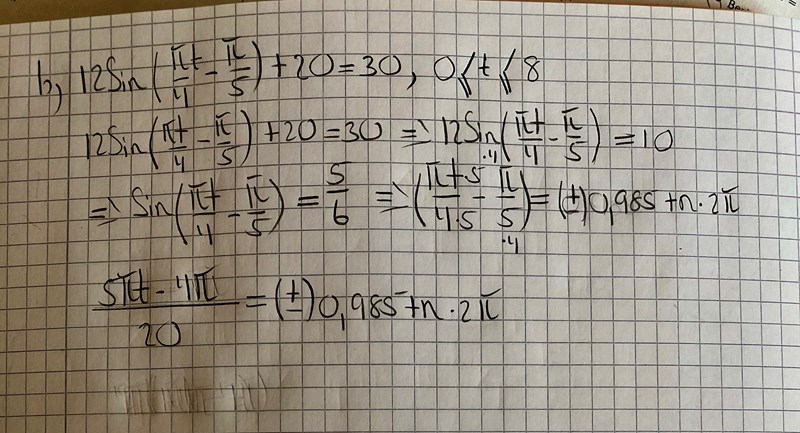 b) 12Sin(πt/4 - π/5) + 20 = 30, 0 ≤ t ≤ 8
12Sin(πt/4 - π/5) + 20 = 30 ⇒ 12Sin(πt/4 - π/5) = 10
⇒ Sin(πt/4 - π/5) = 5/6 ⇒ (πt·5/4·5 - π·4/5·4) = (±) 0,985 + n · 2π
5πt - 4π/20 = (±) 0,985 + n · 2π